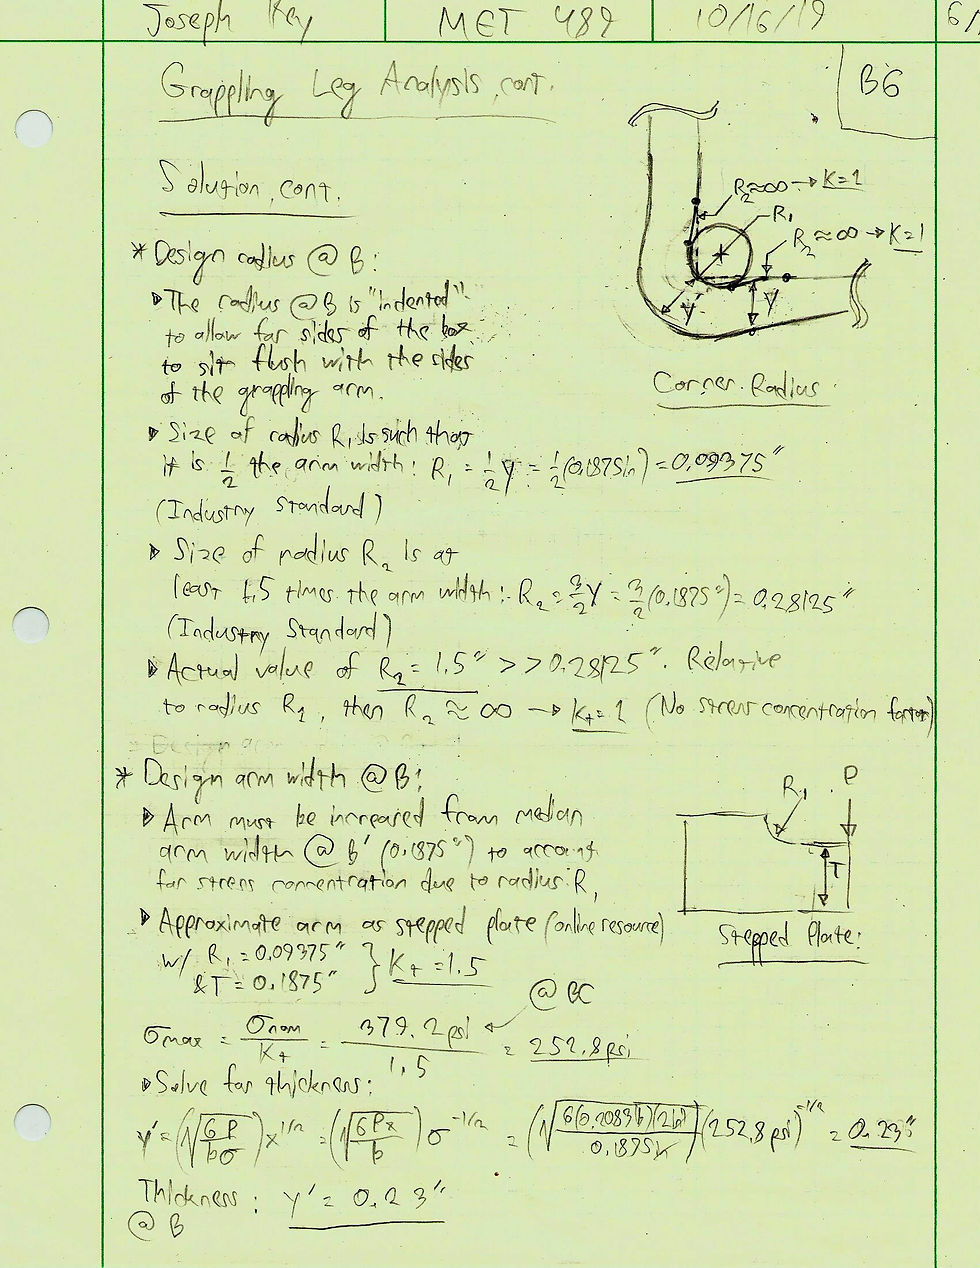 Joseph Key MET 489 10/16/19 6/
Grappling Leg Analysis, cont.
B6
Solution, cont.
R₂≈∞ → K=1
R₁
R₂≈∞ → K=1
Y
Y
Corner Radius
* Design radius @ B:
▸ The radius @ B is "indented"
to allow for sides of the box
to sit flush with the sides
of the grappling arm.
▸ Size of radius R₁ is such that
it is 1/2 the arm width: R₁ = 1/2 Y = 1/2 (0.1875in) = 0.09375"
(Industry Standard)
▸ Size of radius R₂ is at
least 1.5 times the arm width: R₂ = 3/2 Y = 3/2 (0.1875") = 0.28125"
(Industry Standard)
▸ Actual value of R₂ = 1.5" >> 0.28125". Relative
to radius R₁, then R₂ ≈ ∞ → Kₜ=1 (No stress concentration factor)
* Design arm width @ B:
▸ Arm must be increased from median
arm width @ B' (0.1875") to account
for stress concentration due to radius R₁
▸ Approximate arm as stepped plate (online resource)
w/ R₁ = 0.09375"
& T = 0.1875" } Kₜ = 1.5
R₁ P
T
Stepped Plate:
@ BC
σmax = σnom/Kₜ = 379.2psi/1.5 = 252.8psi
▸ Solve for thickness:
y' = (√(6P/bσ)) x^1/2 = (√(6Px/b)) σ^-1/2 = (√(6(0.2083lb)(2in)/0.1875in)) (252.8 psi)^-1/2 = 0.23"
Thickness: y' = 0.23"
@ B